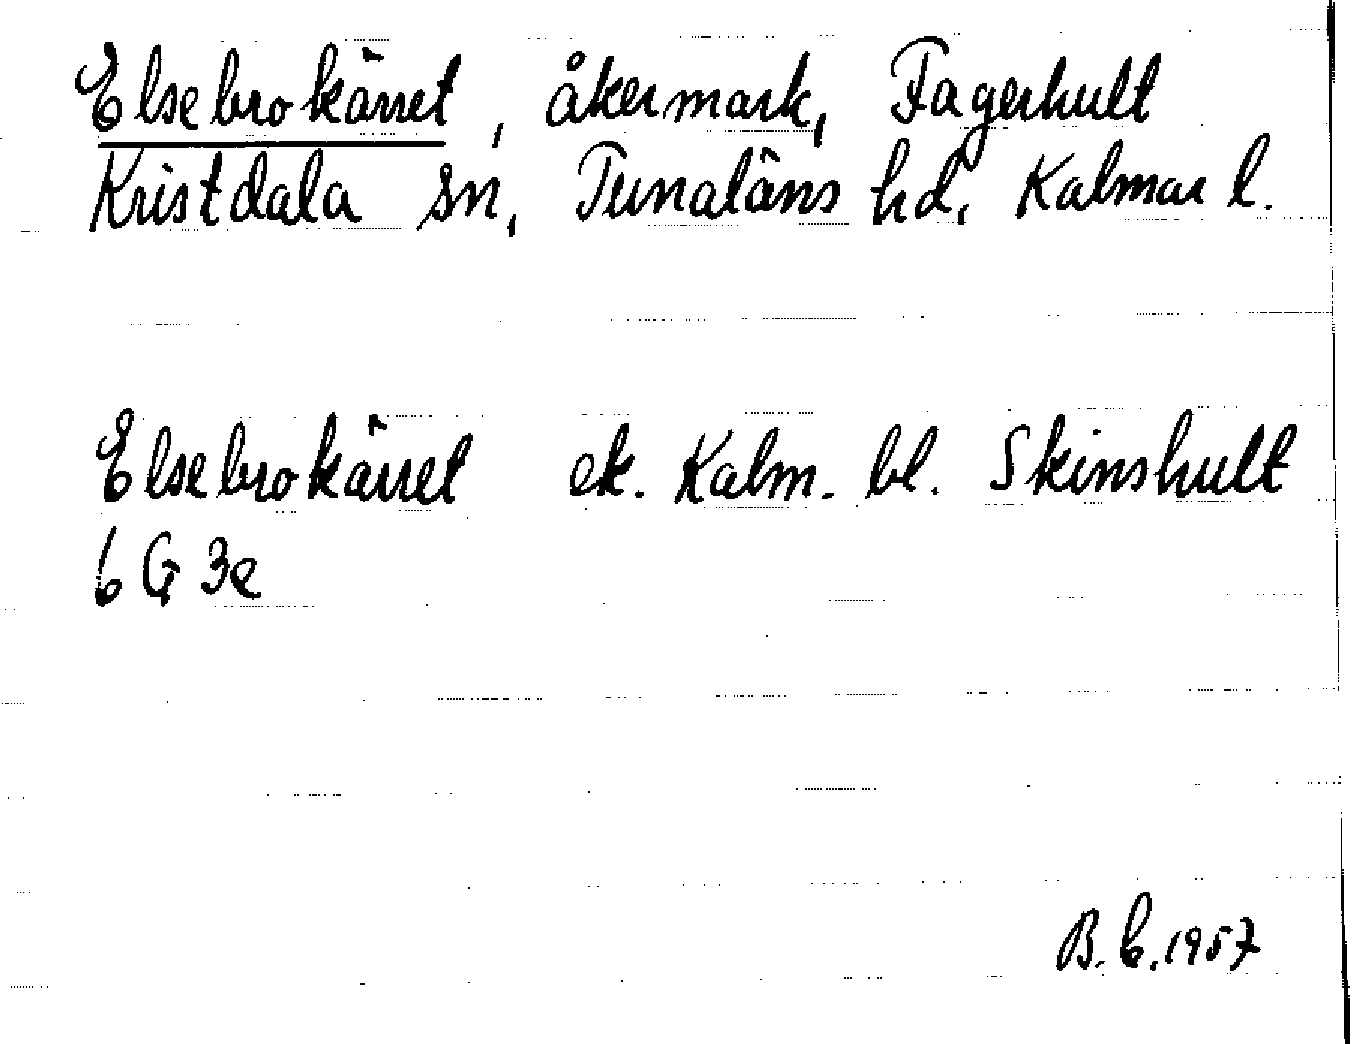 Elsebrokärret, åkermark, Fagerhult
Kristdala sn, Tunaläns hd, Kalmar l.
Elsebrokärret ek. Kalm. bl. Skinshult
6 G 3e
B. C. 1957